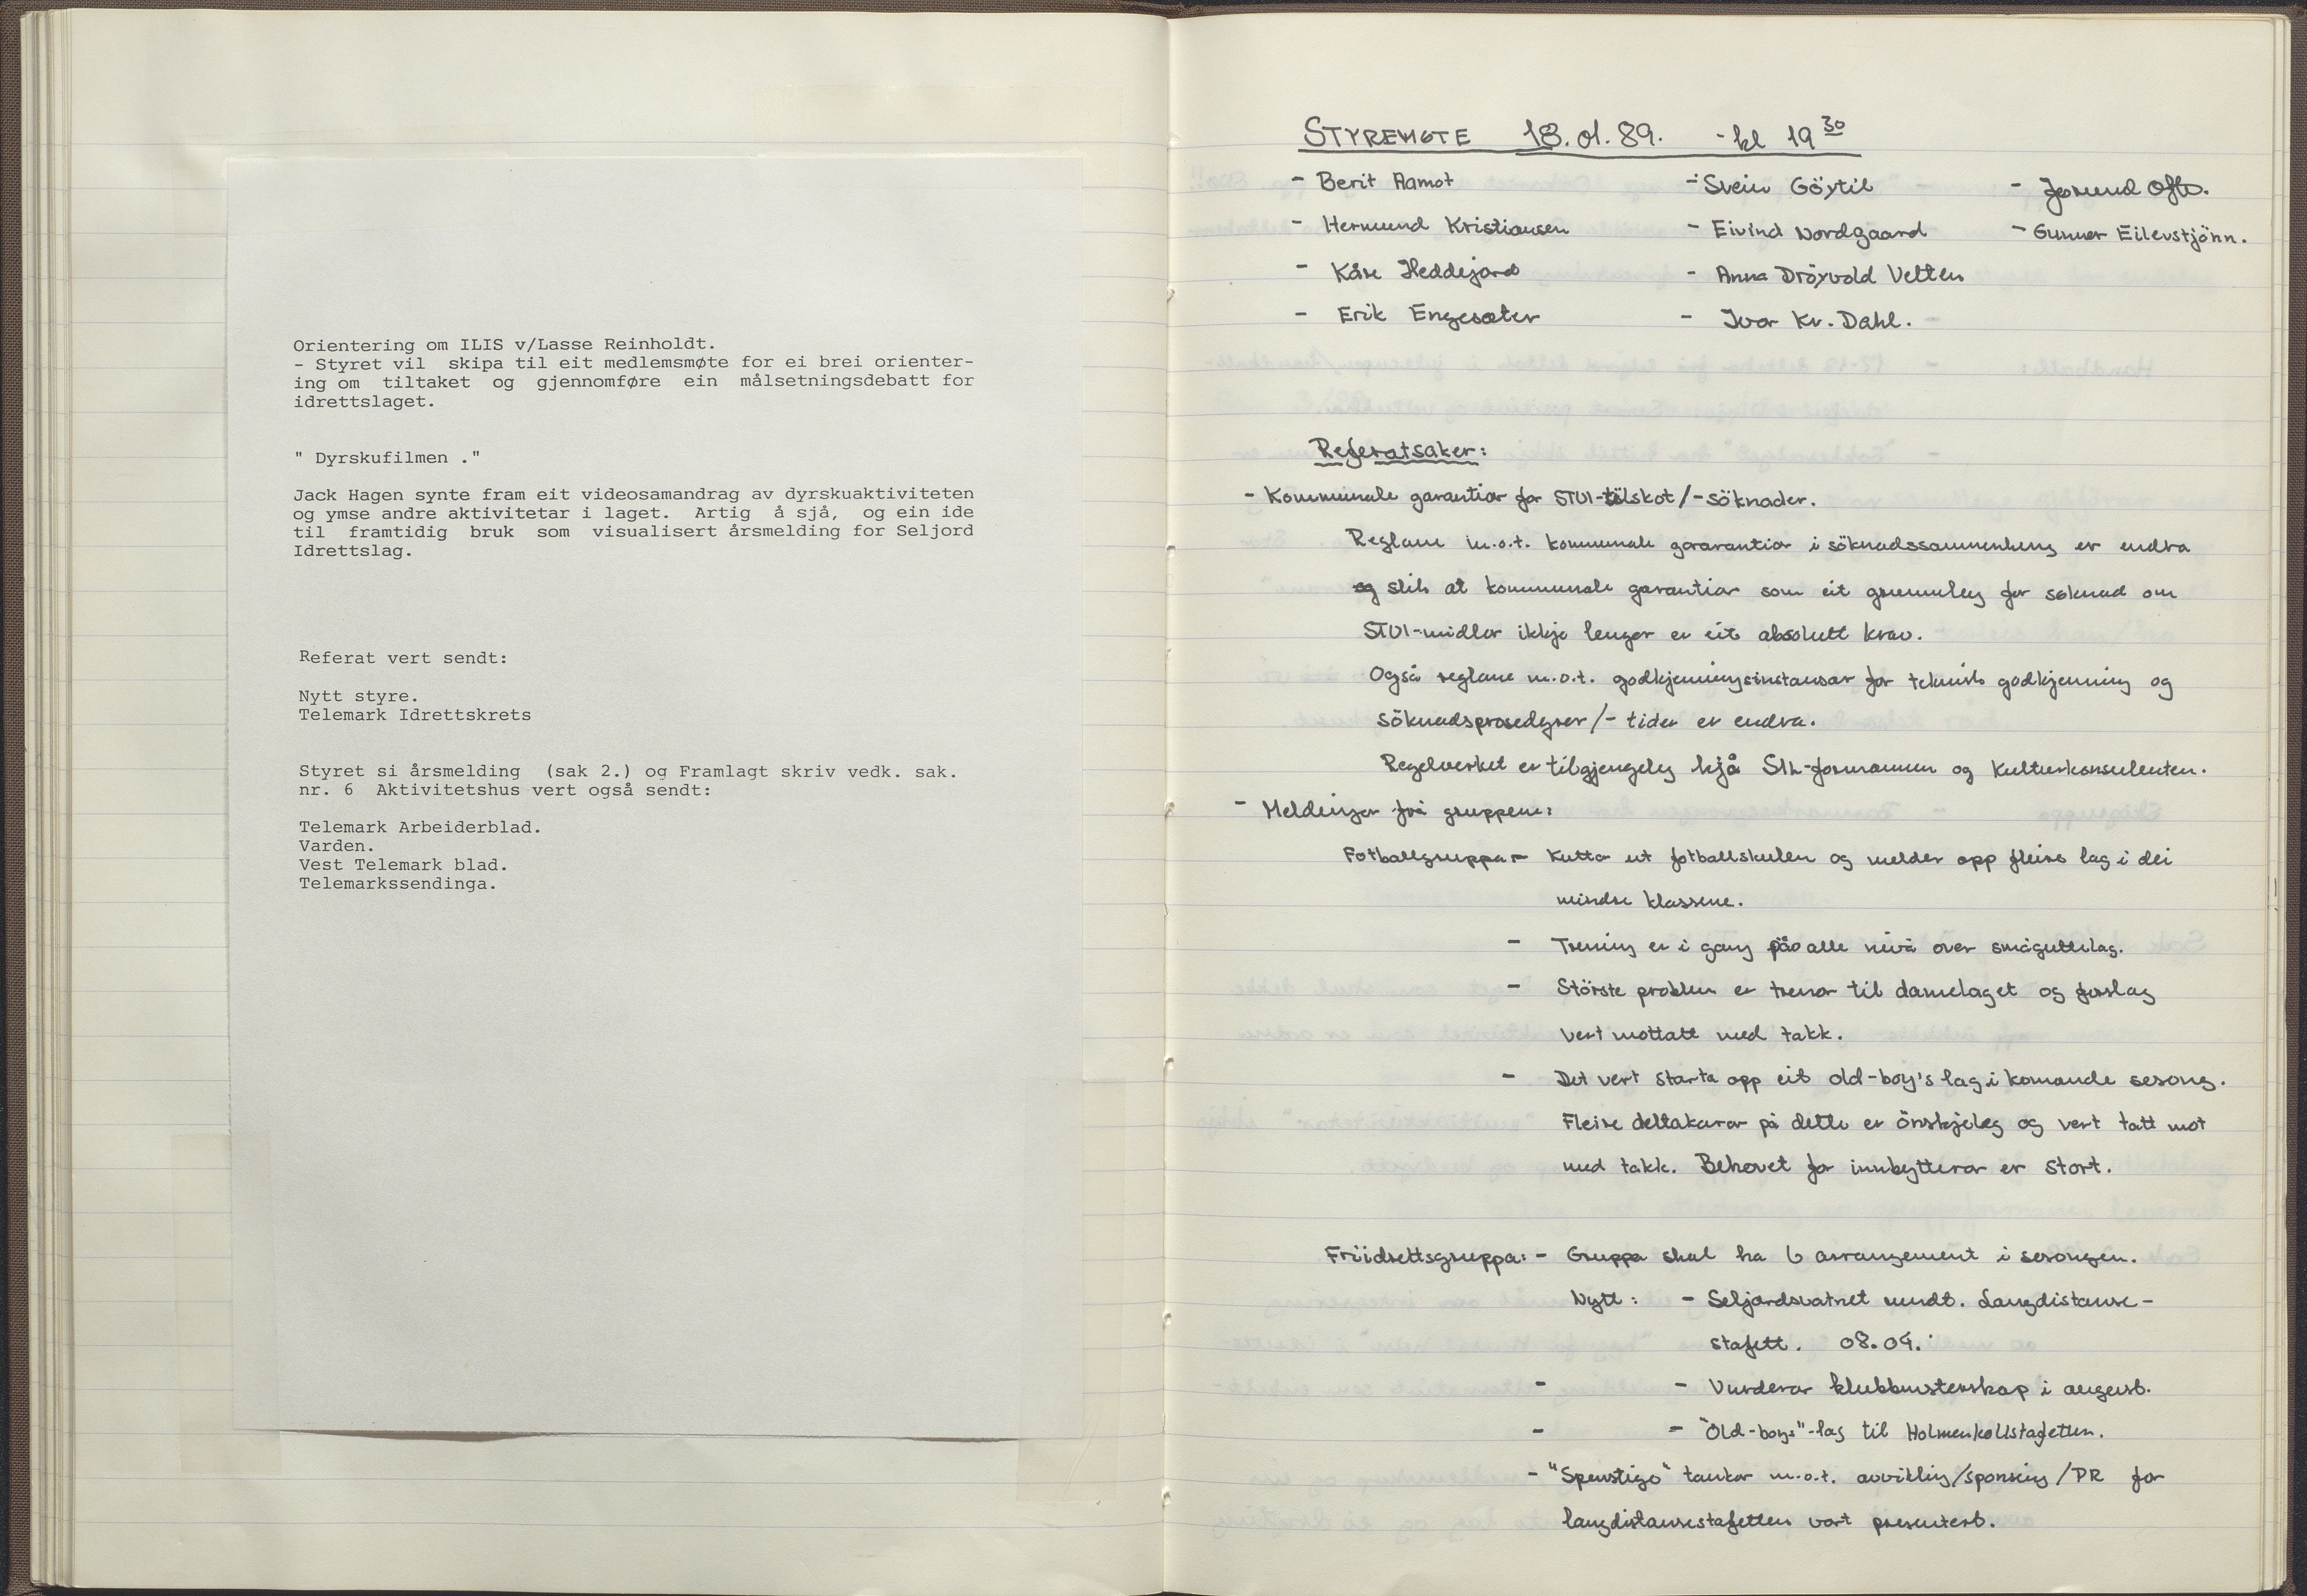 Orientering om ILIS v/Lasse Reinholdt.
- Styret vil skipa til eit medlemsmøte for ei brei orienter-
ing om tiltaket og gjennomføre ein målsetningsdebatt for
idrettslaget.
" Dyrskufilmen ."
Jack Hagen synte fram eit videosamandrag av dyrskuaktiviteten
og ymse andre aktivitetar i laget. Artig å sjå, og ein ide
til framtidig bruk som visualisert årsmelding for Seljord
Idrettslag.
Referat vert sendt:
Nytt styre.
Telemark Idrettskrets
Styret si årsmelding (sak 2.) og Framlagt skriv vedk. sak.
nr. 6 Aktivitetshus vert også sendt:
Telemark Arbeiderblad.
Varden.
Vest Telemark blad.
Telemarkssendinga.
STYREMØTE 18.01.89. - kl 19 30
- Berit Aamot - Svein Göytil - Jorund Ofte.
- Hermund Kristiansen - Eivind Nordgaard - Gunnar Eilevstjönn.
- Kåre Heddejord - Anna Dröyvold Vetten
- Erik Engesæter - Ivar Kr. Dahl.
Referatsaker:
- Kommunale garantiar for STUI-tilskot/-söknader.
Reglane m.o.t. kommunale gararantiar i söknadssammenheng er endra
og slik at kommunale garantiar som eit grunnlag for søknad om
STUI-midlar ikkje lenger er eit absolutt krav.
Også reglane m.o.t. godkjenningsinstansar for teknisk godkjenning og
söknadsprosedyrer/- tider er endra.
Regelverket er tilgjengeleg hjå SIL-formannen og Kulturkonsulenten.
- Meldingar frå gruppene:
Fotballgruppa - Kutta ut fotballskulen og melder opp fleire lag i dei
mindre klassene.
- Trening er i gang på alle nivå over småguttelag.
- Störste problem er trenar til damelaget og forslag
vert mottatt med takk.
- Det vert starta opp eit old-boy's lag i komande sesong.
Fleire deltakarar på dette er önskjeleg og vert tatt mot
med takk. Behovet for innbyttarar er stort.
Friidrettsgruppa: - Gruppa skal ha 6 arrangement i sesongen.
Nytt: - Seljordsvatnet rundt. Langdistanse-
stafett. 08.04.
- - Vurderar klubbmesterskap i august.
- - "Old-boys"-lag til Holmenkollstafetten.
- "Spenstige" tankar m.o.t. avvikling/sponsing/PR for
langdistansestafetten vart presentert.